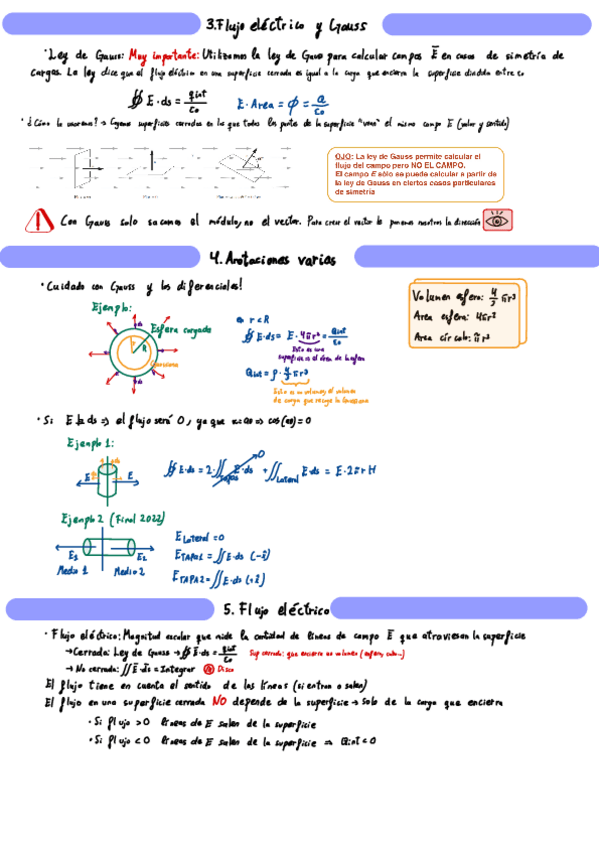 3.Flujo eléctrico y Gauss
· Ley de Gauss: Muy importante: Utilizamos la ley de Gauss para calcular campos E en casos de simetría de
cargas. La ley dice que el flujo eléctrico en una superficie cerrada es igual a la carga que encierra la superficie dividida entre ε0
∯ E·ds = qint/ε0   E·Area = Φ = Q/ε0
· ¿Cómo la usaremos? → Cogemos superficies cerradas en la que todos los puntos de la superficie "vean" el mismo campo E (valor y sentido)
OJO: La ley de Gauss permite calcular el
flujo del campo pero NO EL CAMPO.
El campo E sólo se puede calcular a partir de
la ley de Gauss en ciertos casos particulares
de simetría
Con Gauss solo sacamos el módulo, no el vector. Para crear el vector le ponemos nosotros la dirección
4. Anotaciones varias
· Cuidado con Gauss y los diferenciales!
Ejemplo:
Esfera cargada
r
R
Gaussiana
r<R
∯ E·ds = E·4πr² = Qint/ε0
Esto es una
superficie, es el área de la esfera
Qint = ρ·4/3πr³
Esto es un volumen, el volumen
de carga que recoge la Gaussiana
Volumen esfera: 4/3 πr³
Area esfera: 4πr²
Area círculo: πr²
· Si E ⊥ ds => el flujo será 0, ya que α=90 => cos(90)=0
Ejemplo 1:
ds
E
E
∯ E·ds = 2·∬Tapas E·ds + ∬Lateral E·ds = E·2πrH
0
Ejemplo 2 (Final 2022)
E1
E2
Medio 1
Medio 2
E Lateral = 0
E TAPA1 = ∬ E·ds (-î)
E TAPA2 = ∬ E·ds (+î)
5. Flujo eléctrico
· Flujo eléctrico: Magnitud escalar que mide la cantidad de líneas de campo E que atraviesan la superficie
→ Cerrada: Ley de Gauss → ∯ E·ds = Qint/ε0 Sup cerrada: que encierra un volumen (esfera, cubo...)
→ No cerrada: ∬ E·ds = Integrar Disco
El flujo tiene en cuenta el sentido de las líneas (si entran o salen)
El flujo en una superficie cerrada NO depende de la superficie → Solo de la carga que encierra
· Si flujo > 0 líneas de E salen de la superficie
· Si flujo < 0 líneas de E salen de la superficie => Qint < 0